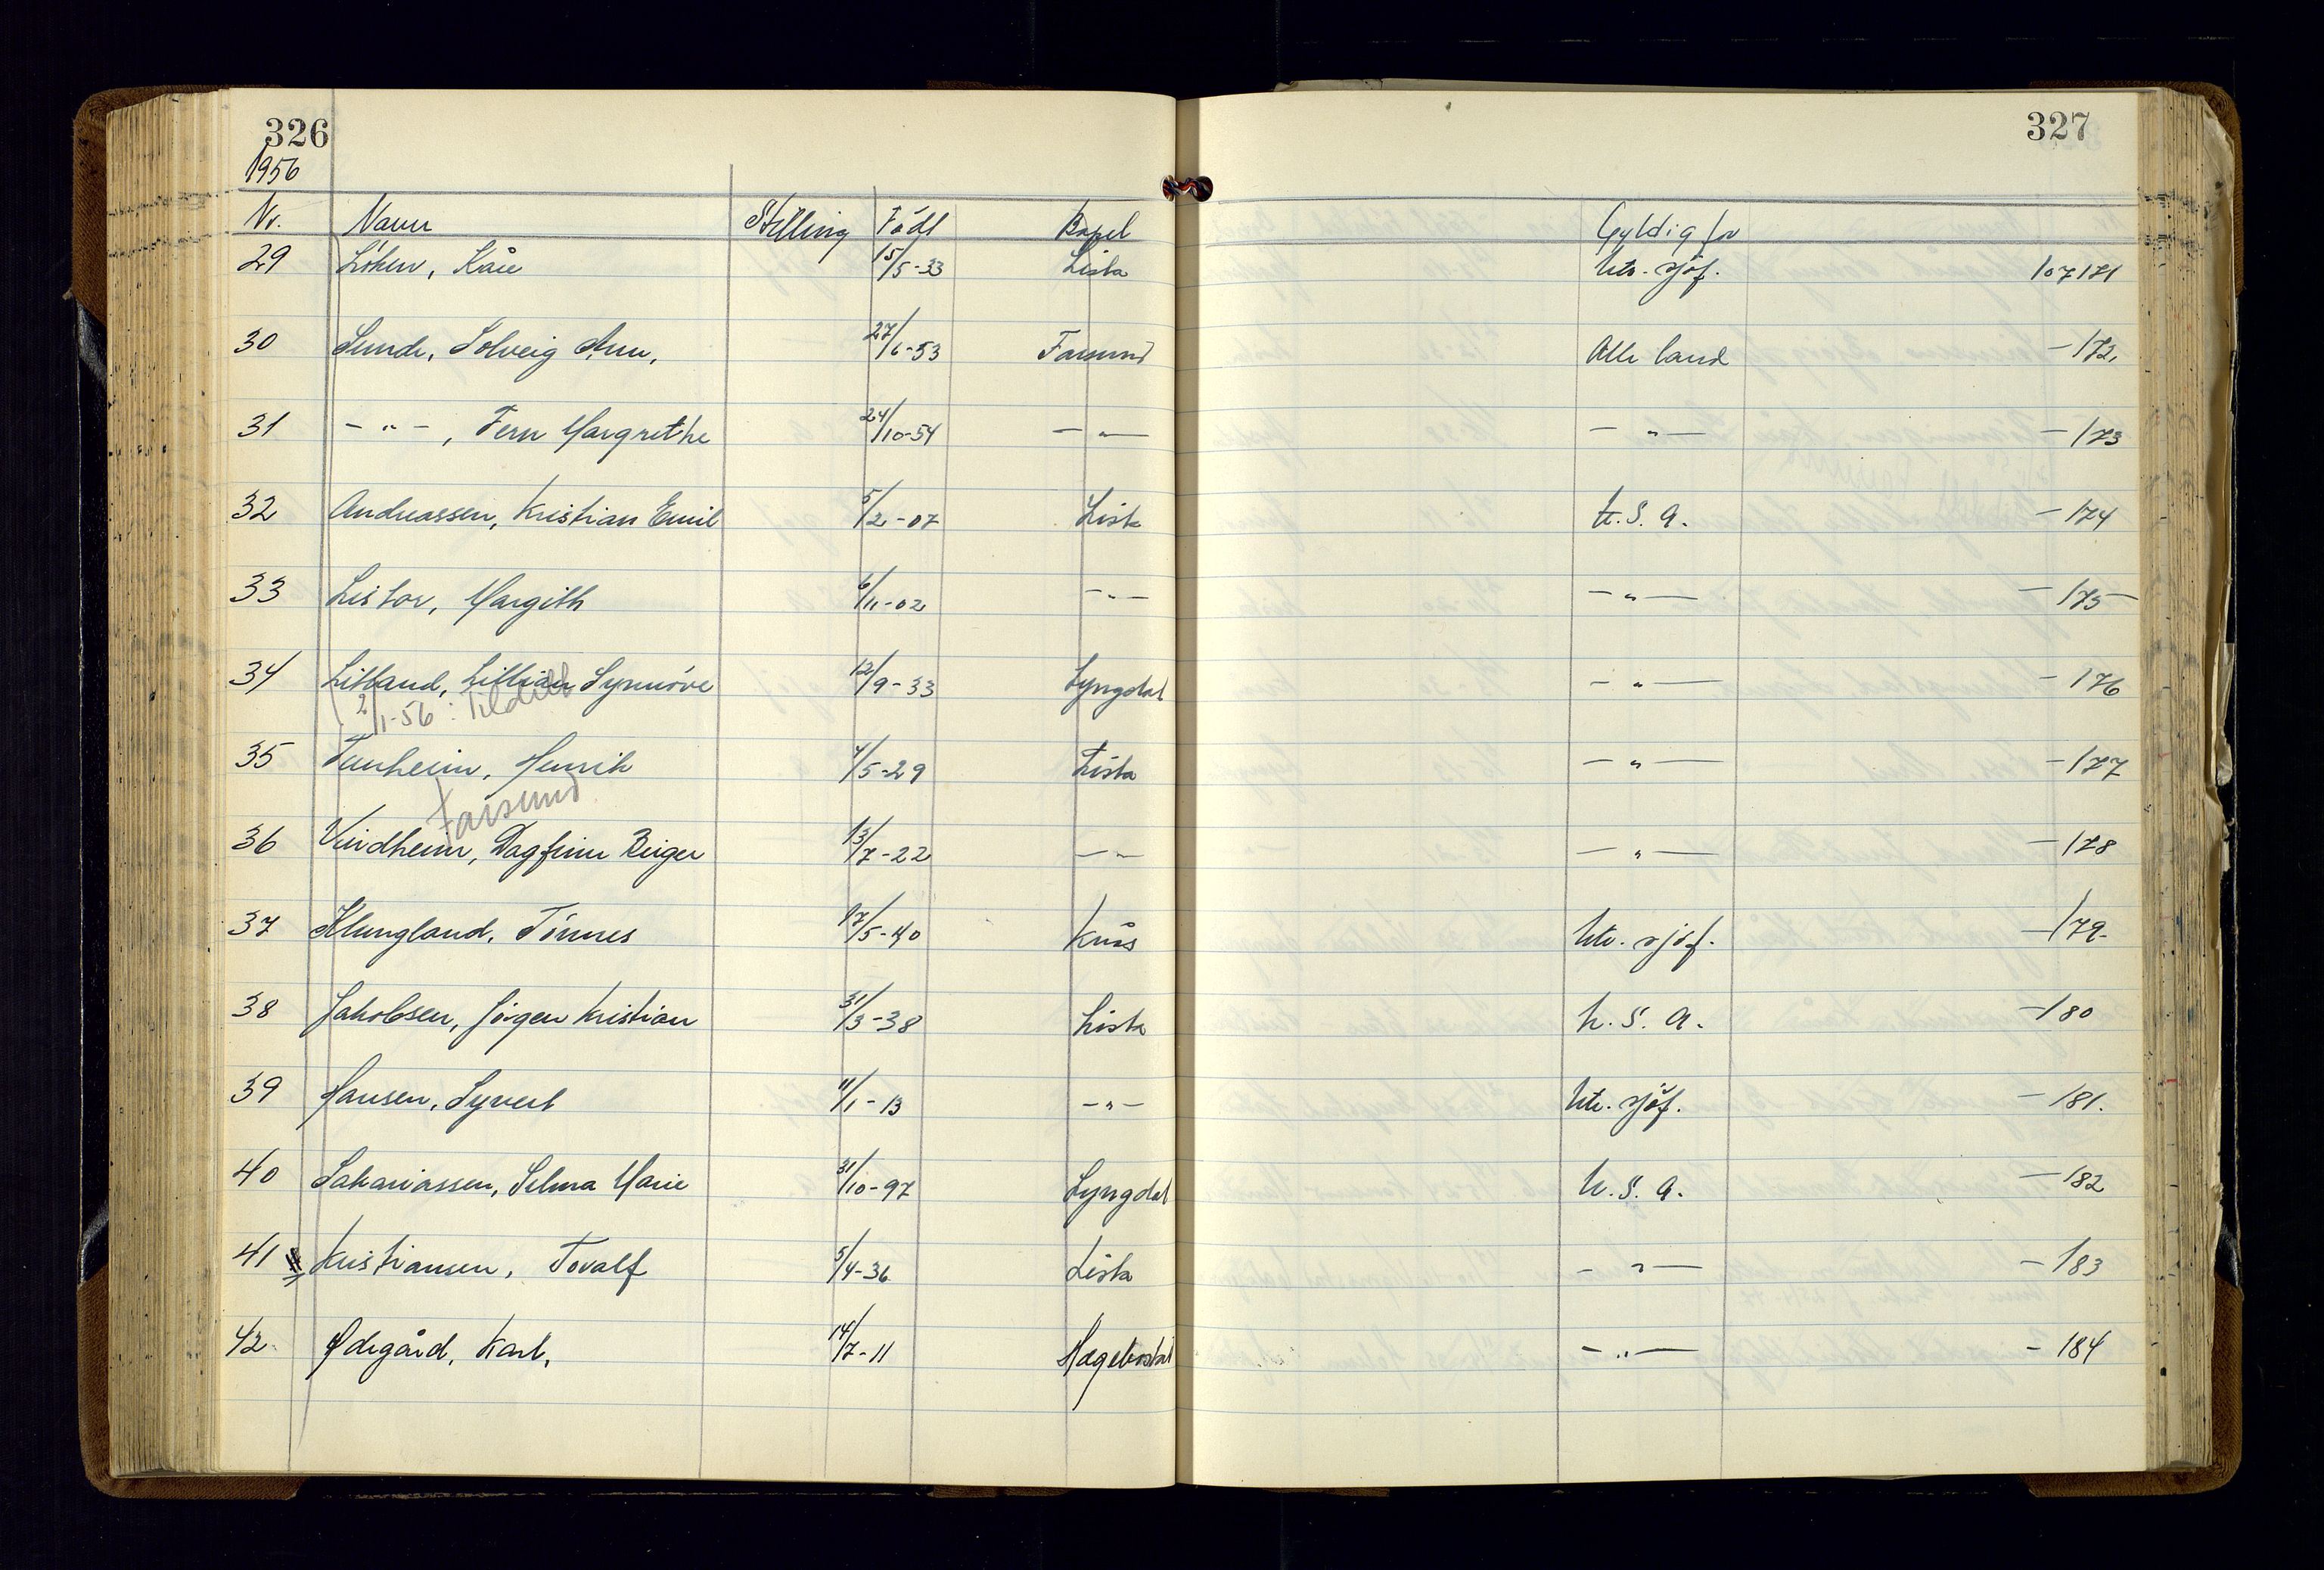 326
327
1956
Nr. Navn Stilling Födt Bopel Gyldig for
29 Löken, Kåre 15/5-33 Lista Utr. sjöf. 107171
30 Sunde, Solveig Ann, 27/6-53 Farsund Alle land -172,
31 - " - , Fern Margrethe 24/10-54 - " - - " - -173
32 Andreassen, Kristian Emil 5/2-07 Lista U. S. A. -174
33 Listor, Margith 6/11-02 - " - - " - -175
34 Litland, Lillian Synnöve 12/9-33 Lyngdal - " - -176
2/1-56:
35 Tunheim, Henrik 4/5-29 Lista - " - -177
Farsund
36 Vindheim, Dagfinn Reiger 13/7-22 - " - - " - -178
37 Klungland, Tönnes 17/5-40 Kvås Utr. sjöf. -179-
38 Jakobsen, Jörgen Kristian 31/3-38 Lista U. S. A. -180
39 Hansen, Syvert 11/1-13 - " - Utr. sjöf. -181.
40 Sakariassen, Selma Marie 31/10-97 Lyngdal U. S. A. -182
41 Kristiansen, Tovalf 5/4-36 Lista - " - -183
42. Ødegård, Karl, 14/7-11 Hægebostad - " - -184